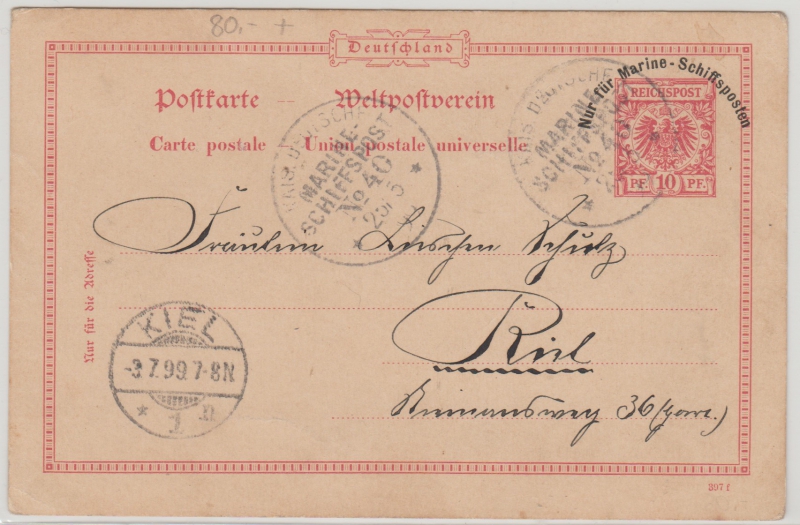 80.- +
Deutschland
Nur für Marine-Schiffsposten
REICHSPOST
PF. 10 PF.
Postkarte — Weltpostverein
Carte postale Union postale universelle
KAIS. DEUTSCHE
MARINE-
SCHIFFSPOST
No 40
25/5
KAIS. DEUTSCHE
MARINE-
SCHIFFSPOST
No 40
Fräulein Schulz
Kiel
36
Nur für die Adresse
KIEL
-3.7.99.7-8N
* 1 n
397 f